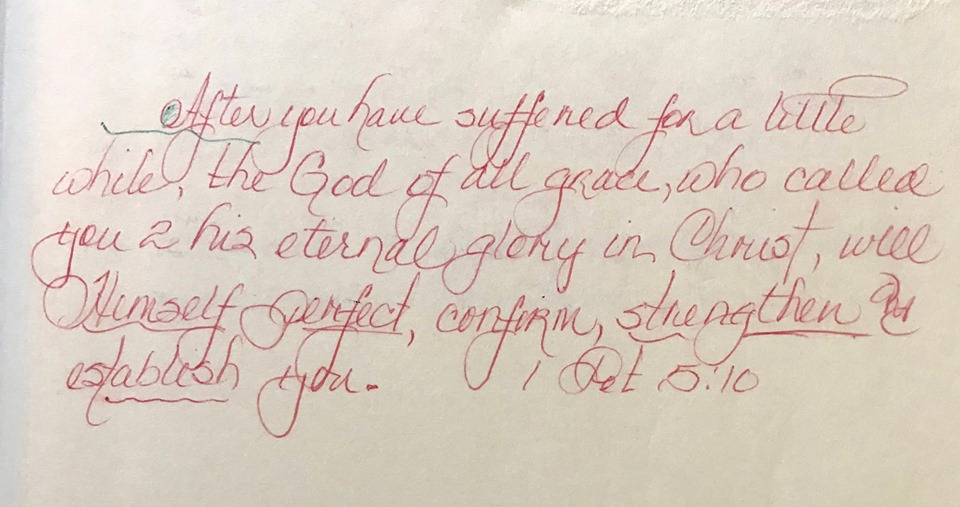 After you have suffered for a little
while, the God of all grace, who called
you 2 his eternal glory in Christ, will
Himself perfect, confirm, strengthen &
establish you. 1 Pet 5:10